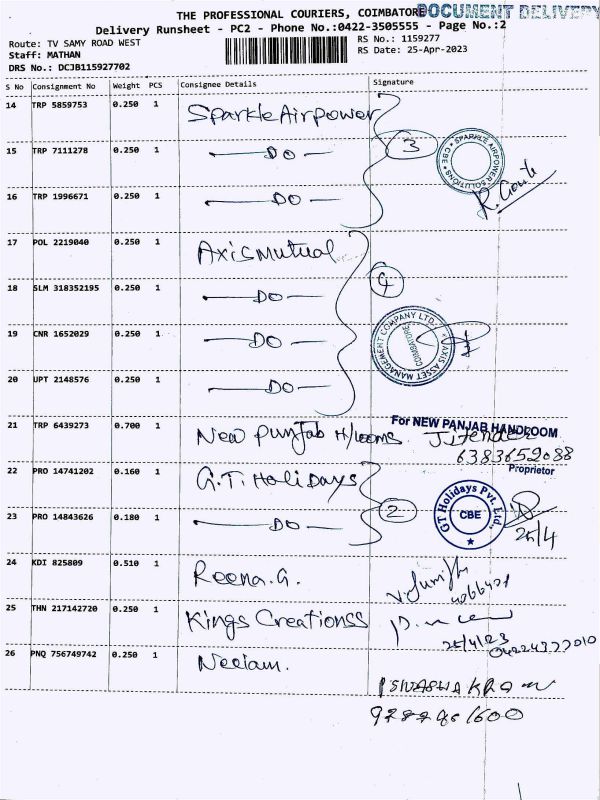 THE PROFESSIONAL COURIERS, COIMBATORE DOCUMENT DELIVERY
Delivery Runsheet - PC2 - Phone No.:0422-3505555 - Page No.:2
Route: TV SAMY ROAD WEST RS No.: 1159277
Staff: MATHAN RS Date: 25-Apr-2023
DRS No.: DCJB115927702
S No Consignment No Weight PCS Consignee Details Signature
14 TRP 5859753 0.250 1 Sparkle Airpower
15 TRP 7111278 0.250 1 DO 3
SPARKLE AIRPOWER SOLUTIONS * CBE *
16 TRP 1996671 0.250 1 DO
17 POL 2219040 0.250 1 Axis Mutual
18 SLM 318352195 0.250 1 DO 4
19 CNR 1652029 0.250 1 DO
AXIS ASSET MANAGEMENT COMPANY LTD. COIMBATORE
20 UPT 2148576 0.250 1 DO
21 TRP 6439273 0.700 1 New Punjab H/looms
For NEW PANJAB HANDLOOM
Jitender
6383652088
Proprietor
22 PRO 14741202 0.160 1 G.T. HoliDays
23 PRO 14843626 0.180 1 DO 2
GT Holidays Pvt. Ltd., CBE
25/4
24 KDI 825809 0.510 1 Reena.G.
25 THN 217142720 0.250 1 Kings Creationss
25/4/23
26 PNQ 756749742 0.250 1 Neelam.